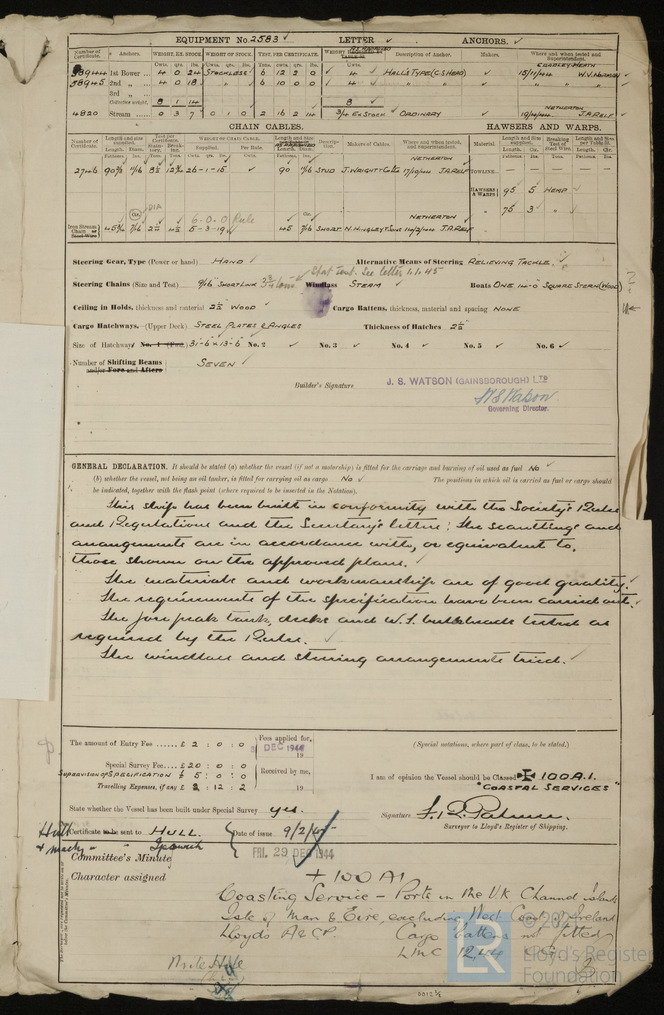 EQUIPMENT No. 2583 LETTER ANCHORS.
Number of Certificate. Anchors. WEIGHT, EX. STOCK WEIGHT OF STOCK. TEST, PER CERTIFICATE. WEIGHT Description of Anchor. Makers. Where and when tested and Superintendent.
Cwts. qrs. lbs. Cwts. qrs. lbs. Tons. Cwts. qrs. lbs. Cwts. CRADLEY HEATH
58944 1st Bower 4 0 24 STOCKLESS 6 12 2 0 4 HALL'S TYPE (C.S.HEAD) 15/11/44 W.V. NORMAN
58945 2nd " 4 0 18 " 6 10 0 0 4 " " "
3rd "
Collective weight. 8 1 14 8 NETHERTON
4820 Stream 0 3 7 0 1 0 2 16 2 14 3/4 EX STOCK ORDINARY 19/4/44 J.A. RELF
CHAIN CABLES. HAWSERS AND WARPS.
Number of Certificate. Length and size supplied. Test per Certificate. WEIGHT OF CHAIN CABLE Length and Size Description. Makers of Cables. Where and when tested, and Superintendent. Material. Length and Size supplied. Breaking Test of Steel Wire. Length and Size per Table 31.
Length. Diam. Supplied. Per Rule. Length. Diam. Length. Cir. Length. Cir.
NETHERTON
90 STUD 17/10/44 J.A. RELF TOWLINE
HAWSERS & WARPS 95 5 HEMP
DIA
6.0.0 Rule " 75 3 " "
NETHERTON
Iron Stream Chain or Steel Wire 45 5-3-19 45 7/16 SHORT N. HINGLEY & SONS J.A. RELF
Steering Gear, Type (Power or hand) HAND Alternative Means of Steering RELIEVING TACKLE.
Stat Tent. See letter 1.1.45
Steering Chains (Size and Test) 9/16 SHORT LINK 3 3/4 tons Windlass STEAM Boats ONE 14-0 SQUARE STERN (WOOD)
Ceiling in Holds, thickness and material 2½ WOOD Cargo Battens, thickness, material and spacing NONE
Cargo Hatchways. (Upper Deck) STEEL PLATES & ANGLES Thickness of Hatches 2½
Size of Hatchways No. 1 (Fwd.) 31-6 x 13-6 No. 2 No. 3 No. 4 No. 5 No. 6
Number of Shifting Beams and/or Fore and Afters SEVEN
Builder's Signature J. S. WATSON (GAINSBOROUGH) LTD
J S Watson
Governing Director.
GENERAL DECLARATION. It should be stated (a) whether the vessel (if not a motorship) is fitted for the carriage and burning of oil used as fuel No
(b) whether the vessel, not being an oil tanker, is fitted for carrying oil as cargo No The positions in which oil is carried as fuel or cargo should
be indicated, together with the flash point (where required to be inserted in the Notation).
This ship has been built in conformity with the Society's Rules
and Regulations and the Secretary's letters; the scantlings and
arrangements are in accordance with, or equivalent to,
those shown on the approved plans.
The materials and workmanship are of good quality.
The requirements of the specification have been carried out.
The fore peak tank, decks and W.T. bulkheads tested as
required by the Rules.
The windlass and steering arrangements tried.
The amount of Entry Fee ...... £ 2 : 0 : 0
Fees applied for,
DEC 1944
19
Special Survey Fee.... £20 : 0 : 0
SUPERVISION OF SPECIFICATION £ 5 : 0 : 0
Received by me,
19
Travelling Expenses, if any £ 2 : 12 : 2
(Special notations, where part of class, to be stated.)
I am of opinion the Vessel should be Classed ✠ 100 A.1.
"COASTAL SERVICES"
State whether the Vessel has been built under Special Survey yes.
Signature
Surveyor to Lloyd's Register of Shipping.
Hull
Certificate to be sent to HULL. Date of issue 9/2/45
Ipswich
FRI. 29 DEC 1944
Committee's Minute
Character assigned + 100 A1
Coasting Service - Ports in the U.K. Channel Islands
Isle of Man & Eire, excluding West Coast of Ireland
Lloyds A & CP. Cargo Battens not fitted
LMC 12,44
Write Hull
© 20
Lloyd's Register
Foundation
LR